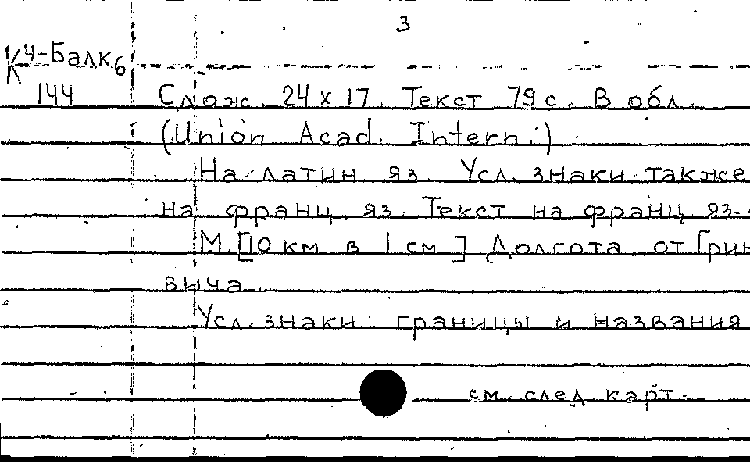 3
К 4-Балк6
144 Слож. 24 х 17. Текст 79 с. В обл.
(Union Acad. Intern.)
На латин яз. Усл. знаки также
на франц. яз. Текст на франц яз.
М. [10 км в 1 см] Долгота от Грин
вича.
Усл. знаки: границы и названия
см. след карт.